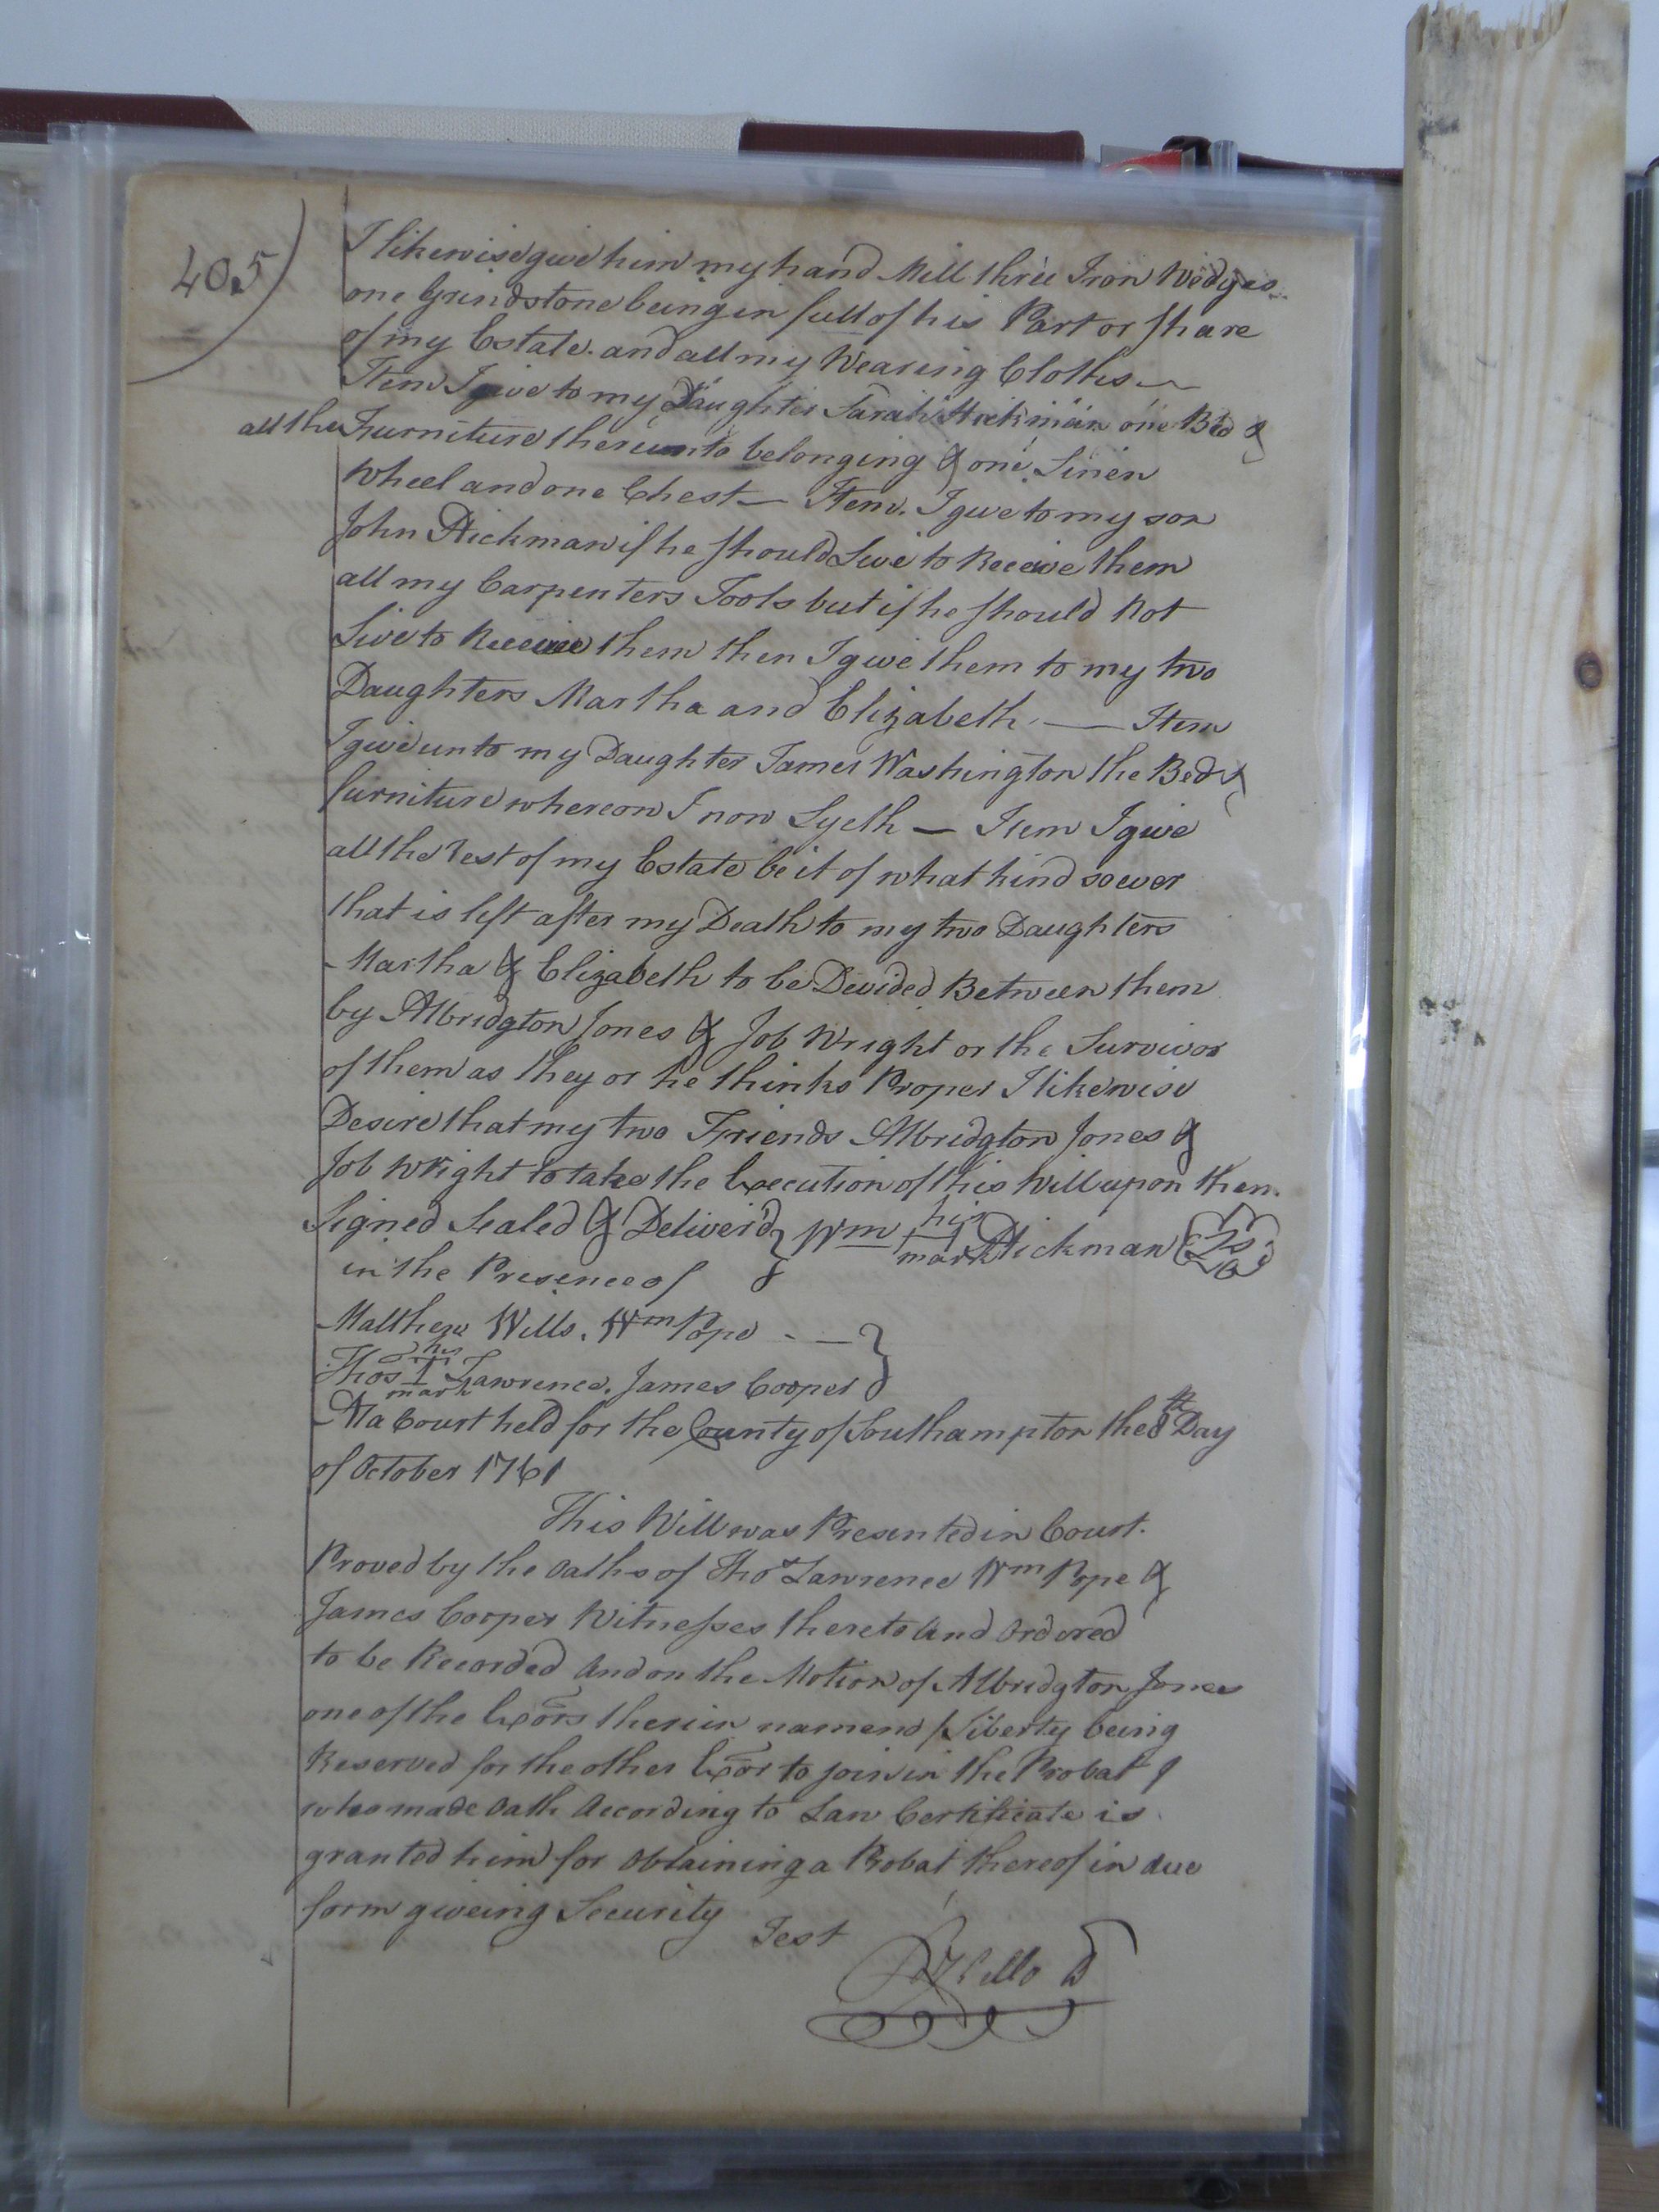 405
I likewise give him my hand Mill three Iron Wedges
one Grindstone being in full of his Part or Share
of my Estate. and all my Wearing Cloths —
Item I give to my Daughter Sarah Hickman one Bed &
all the Furniture thereunto belonging & one Linen
Wheel and one Chest — Item. I give to my son
John Hickman if he should Live to Receive them
all my Carpenters Tools but if he should Not
Live to Receive them then I give them to my two
Daughters Martha and Elizabeth. — Item
I give unto my Daughter James Washington the Bed &
furniture whereon I now Lyeth — Item I give
all the rest of my Estate be it of what kind soever
that is left after my Death to my two Daughters
Martha & Elizabeth to be Devided Between them
by Albridgton Jones & Job Wright or the Survivor
of them as they or he thinks Proper I likewise
Desire that my two Friends Albridgton Jones &
Job Wright to take the Execution of this Will upon them.
Signed Sealed & Deliver'd } Wm his mark Hickman
in the Presence of
Matthew Wills. Wm Pope - — }
Thos his mark Lawrence. James Cooper
At a Court held for the County of Southampton the 8th Day
of October 1761
This Will was Presented in Court.
Proved by the Oaths of Thos Lawrence Wm Pope &
James Cooper Witnesses thereto And Ordered
to be Recorded And on the Motion of Albridgton Jones
one of the Exors therein namend Liberty being
Reserved for the other Exor to join in the Probat
who made Oath According to Law Certificate is
granted him for Obtaining a Probat thereof in due
form giveing Security
Test